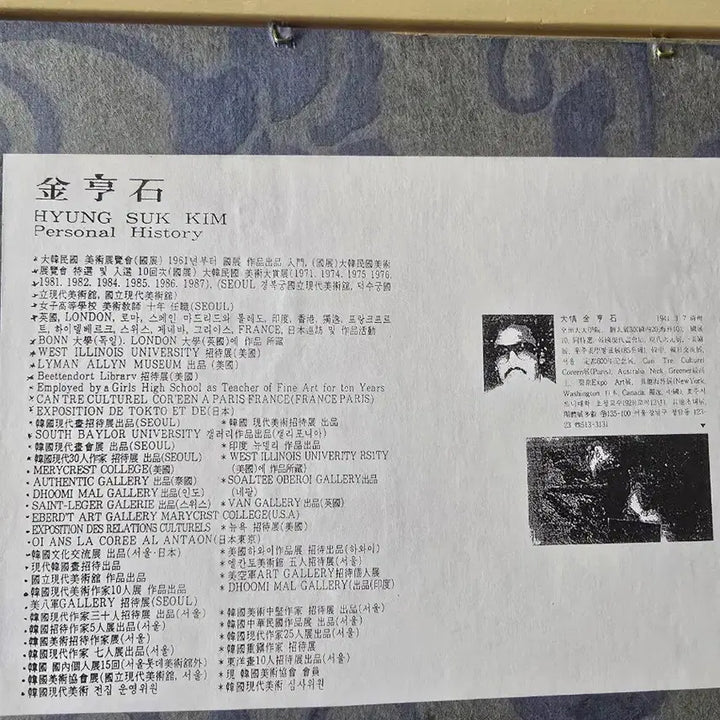 金亨石
HYUNG SUK KIM
Personal History
★大韓民國 美術展覽會(國展) 1961년부터 國展 作品出品 入門, (國展)大韓民國美術
★展覽會 特選 및 入選 10回次(國展) 大韓民國 美術大賞展(1971. 1974. 1975 1976.
★1981. 1982. 1984. 1985. 1986. 1987). (SEOUL 경복궁國立現代美術館, 덕수궁國
立現代美術館, 國立現代美術館)
★女子高等學校 美術敎師 十年 任職(SEOUL)
★英國, LONDON, 로마, 스페인 마드리드와 톨레도, 印度, 香港, 獨逸, 프랑크프르
트, 하이델베르크, 스위스, 제네바, 그리아스, FRANCE, 日本巡訪 및 作品活動
★BONN 大學(독일). LONDON 大學(英國)에 作品 所藏
★WEST ILLINOIS UNIVERSITY 招待展(美國)
★LYMAN ALLYN MUSEUM 出品 (美國)
★Beettendort Library 招待展(美國)
★Employed by a Girls High School as Teacher of Fine Art for ten Years
★CAN TRE CULTUREL COR'EEN A PARIS FRANCE(FRANCE PARIS)
★EXPOSITION DE TOKTO ET DE(日本)
★韓國現代畫招待展出品(SEOUL)
★韓國 現代美術招待展 出品
★SOUTH BAYLOR UNIVERSITY 갤러리作品出品(캘리포니아)
★韓國現代畫會展 出品(SEOUL)
★印度 뉴델리 作品出品
★韓國現代30人作家 招待展 出品(SEOUL)
★WEST ILLINOIS UNIVERITY RSITY
(美國)에 作品所藏)
★MERYCREST COLLEGE(美國)
★AUTHENTIC GALLERY 出品(泰國)
★SOALTEE OBEROI GALLERY出品
(네팔)
★DHOOMI MAL GALLERY出品(인도)
★SAINT-LEGER GALERIE 出品(스위스)
★VAN GALLERY出品(英國)
★EBERD'T ART GALLERY MARYCRST COLLEGE(U.S.A)
★EXPOSITION DES RELATIONS CULTURELS
★뉴욕 招待展(美國)
★OI ANS LA COREE AL ANTAON(日本東京)
★韓國文化交流展 出品(서울·日本)
★美國하와이作品展 招待出品(하와이)
★現代韓國畫招待出品
★엘칸토美術館 五人招待展(서울)
★國立現代美術館 作品出品
★美空軍ART GALLERY招待個人展
★韓國現代美術作家10人展 作品出品
★DHOOMI MAL GALLERY(出品(印度)
★美八軍GALLERY 招待展(SEOUL)
★韓國美術中堅作家 招待展 出品(서울)
★韓國現代作家三十人招待展 出品(서울)
★韓國中華民國作品展 出品(서울)
★韓國招待作家5人展 出品(서울)
★韓國現代作家25人展出品(서울)
★韓國美術招待作家展(서울)
★韓國重鎭作家 招待展
★韓國現代作家 七人展出品(서울)
★東洋畫10人招待展出品(서울)
★韓國 國內個人展15回(서울롯데美術館外)
★現 韓國美術協會 會員
★韓國美術協會展(國立現代美術館, 서울)
★韓國現代美術 심사위원
★韓國現代美術 전집 운영위원
金亨石
Can Tre Culturel
Coreen에(Paris), Australia, Nick, Greener
Art 展, (New York,
Washington, 日本, Canada,
135-100 서울 강남구 청담동 123-
23 513-3131